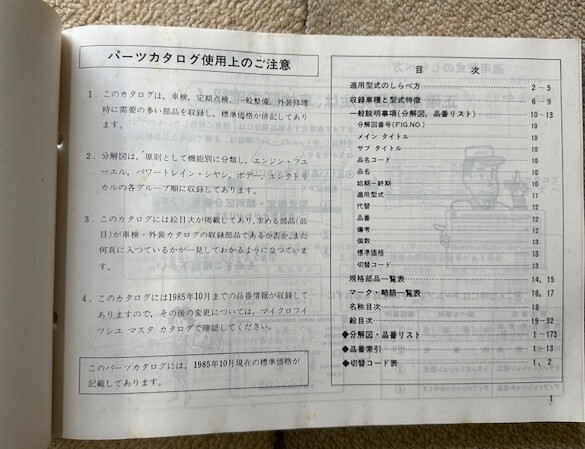 パーツカタログ使用上のご注意
1. このカタログは、車検、定期点検、一般整備、外装修理
時に需要の多い部品を収録し、標準価格が併記してあり
ます。
2. 分解図は、原則として機能別に分類し、エンジン・フユ
ーエル、パワートレイン・シヤシ、ボデー、エレクトリ
カルの各グループ順に収録してあります。
3. このカタログには絵目次が掲載してあり、求める部品(品
目)が車検・外装カタログの収録部品であるか否か、また
何頁に入つているかが一見してわかるようになつていま
す。
4. このカタログには1985年10月までの品番情報が収録して
ありますので、その後の変更については、マイクロフイ
ツシユ マスタ カタログで確認してください。
このパーツカタログには、1985年10月現在の標準価格が
記載してあります。
目 次
適用型式のしらべ方 2−5
収録車種と型式特徴 6−9
一般説明事項(分解図、品番リスト) 10−13
分解図番号(FIG.NO.) 10
メイン タイトル 10
サブ タイトル 10
品名コード 10
品名 10
始期−終期 10
適用型式 11
代替 12
品番 12
備考 12
個数 13
標準価格 13
切替コード 13
規格部品一覧表 14, 15
マーク・略語一覧表 16, 17
名称目次 18
絵目次 19−32
◆分解図・品番リスト 1−173
◆品番索引 1−13
◆切替コード表 1, 2
1